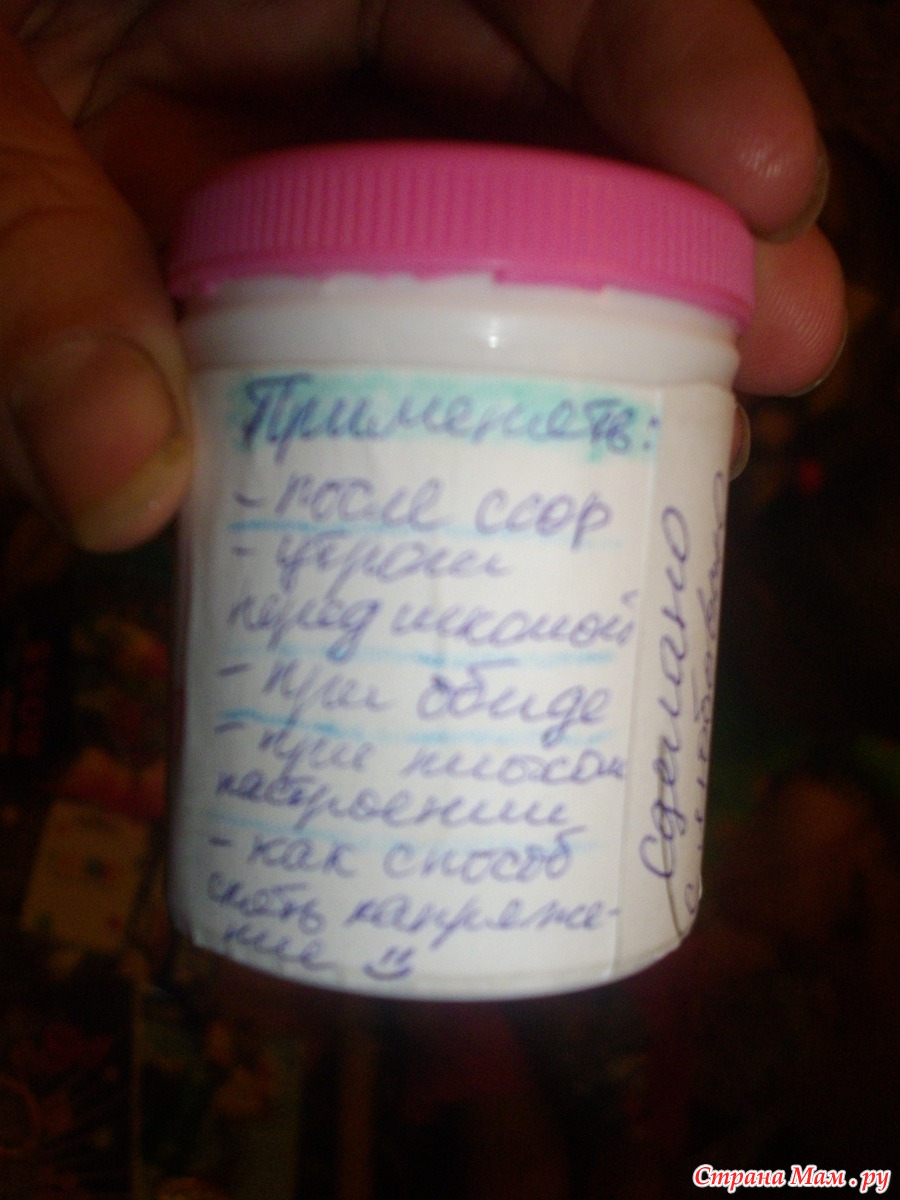 Применять:
- после ссор
- утром
перед школой
- при обиде
- при плохом
настроении
- как способ
снять напряже-
ние
сделано
с любовью
Страна Мам.ру